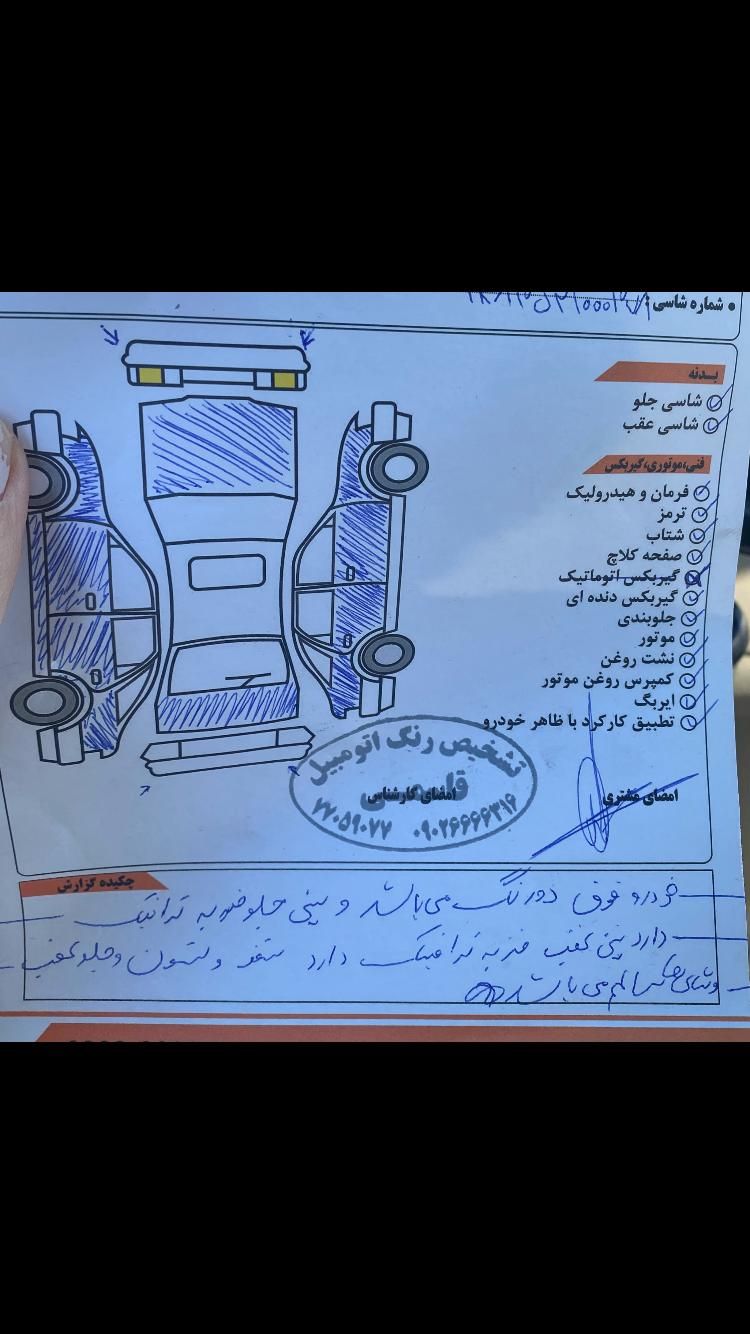 • شماره شاسی:
بدنه
شاسی جلو
شاسی عقب
فنی،موتوری،گیربکس
فرمان و هیدرولیک
ترمز
شتاب
صفحه کلاچ
گیربکس اتوماتیک
گیربکس دنده ای
جلوبندی
موتور
نشت روغن
کمپرس روغن موتور
ایربگ
تطبیق کارکرد با ظاهر خودرو
تشخیص رنگ اتومبیل
۷۷۰۵۹۰۷۷ ۰۹۰۲۶۶۶۶۳۱۶
امضای مشتری
امضای کارشناس
چکیده گزارش
خودرو فوق دور رنگ می باشد و سینی جلو ضربه ترافیک
دارد سینی عقب ضربه ترافیک دارد سقف و ستون و جلو عقب
و شاسی ها سالم می باشد